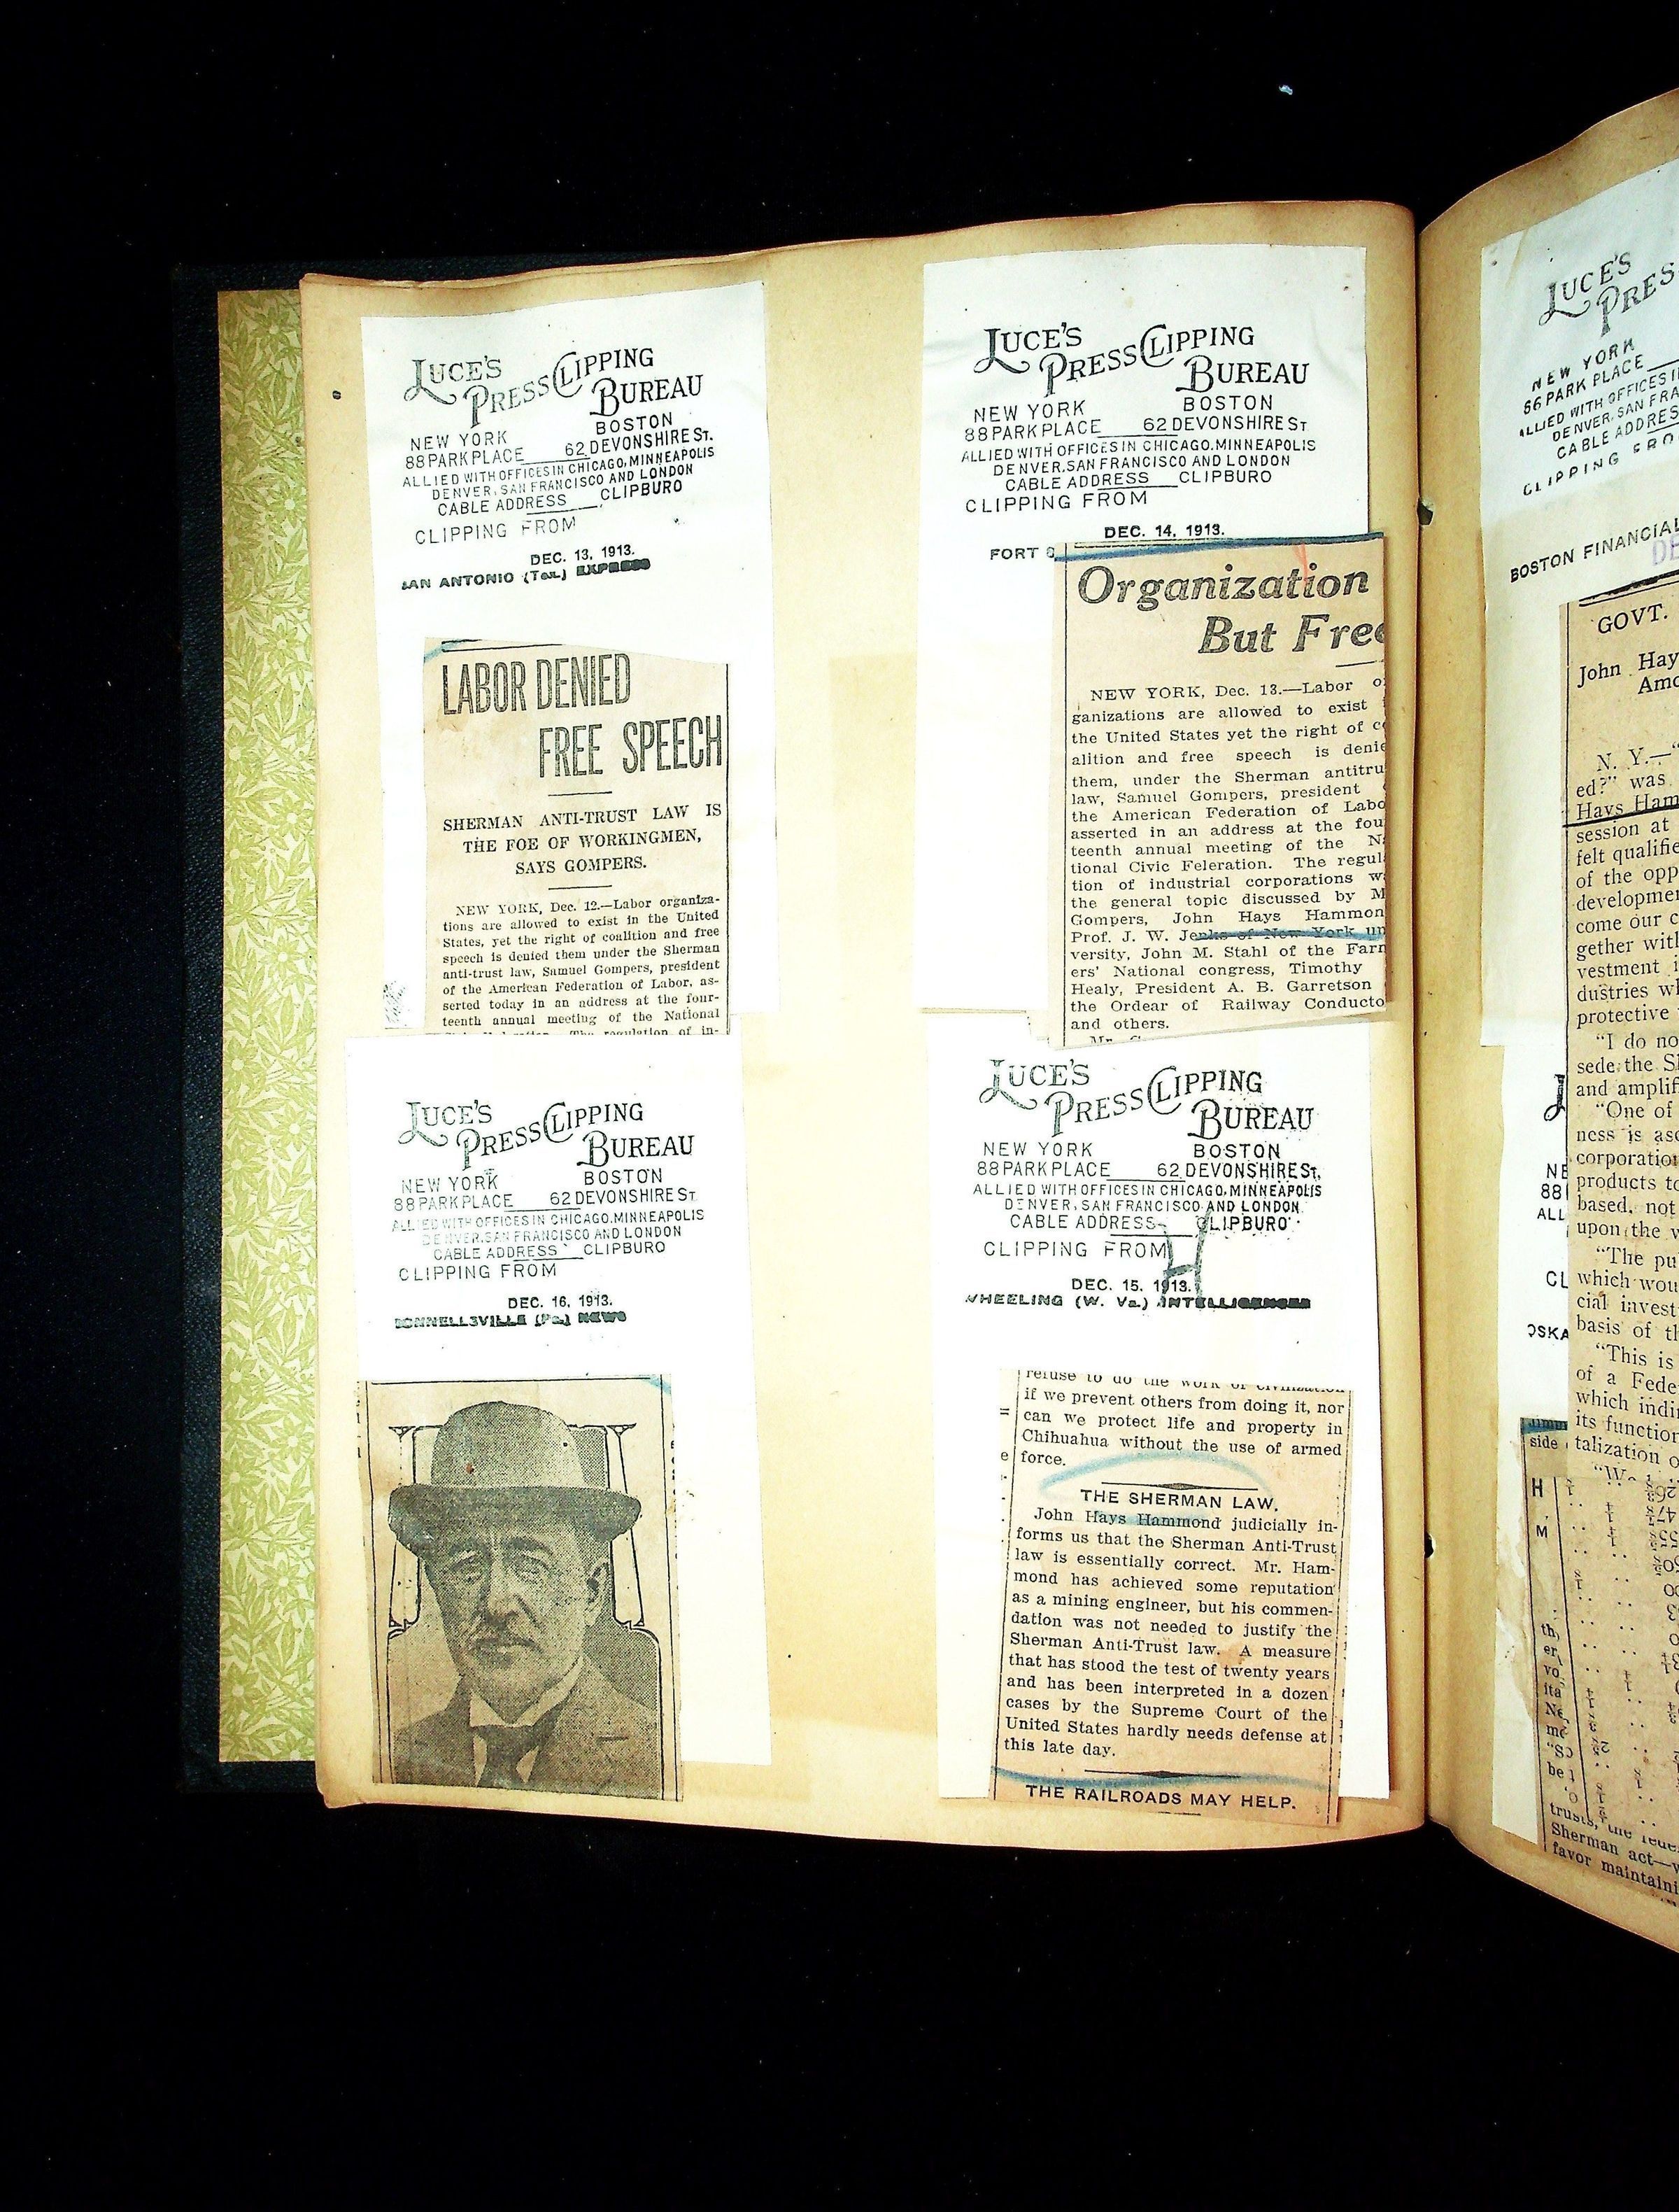 LUCE'S
PRESS CLIPPING
BUREAU
NEW YORK BOSTON
88 PARK PLACE 62 DEVONSHIRE ST.
ALLIED WITH OFFICES IN CHICAGO, MINNEAPOLIS
DENVER, SAN FRANCISCO AND LONDON
CABLE ADDRESS CLIPBURO
CLIPPING FROM
DEC. 13, 1913.
SAN ANTONIO (Tex.) EXPRESS
LABOR DENIED
FREE SPEECH
SHERMAN ANTI-TRUST LAW IS
THE FOE OF WORKINGMEN,
SAYS GOMPERS.
NEW YORK, Dec. 12.—Labor organiza-
tions are allowed to exist in the United
States, yet the right of coalition and free
speech is denied them under the Sherman
anti-trust law, Samuel Gompers, president
of the American Federation of Labor, as-
serted today in an address at the four-
teenth annual meeting of the National
The regulation of in-
LUCE'S
PRESS CLIPPING
BUREAU
NEW YORK BOSTON
88 PARK PLACE 62 DEVONSHIRE ST.
ALLIED WITH OFFICES IN CHICAGO. MINNEAPOLIS
DENVER. SAN FRANCISCO AND LONDON
CABLE ADDRESS CLIPBURO
CLIPPING FROM
DEC. 16, 1913.
CONNELLSVILLE (Pa.) NEWS
LUCE'S
PRESS CLIPPING
BUREAU
NEW YORK BOSTON
88 PARK PLACE 62 DEVONSHIRE ST
ALLIED WITH OFFICES IN CHICAGO. MINNEAPOLIS
DENVER. SAN FRANCISCO AND LONDON
CABLE ADDRESS CLIPBURO
CLIPPING FROM
DEC. 14, 1913.
FORT
Organization
But Free
NEW YORK, Dec. 13.—Labor o
ganizations are allowed to exist
the United States yet the right of c
alition and free speech is denie
them, under the Sherman antitru
law, Samuel Gompers, president
the American Federation of Labo
asserted in an address at the fou
teenth annual meeting of the N
tional Civic Feleration. The regul
tion of industrial corporations w
the general topic discussed by M
Gompers, John Hays Hammon
Prof. J. W. Jenks of New York un
versity, John M. Stahl of the Farm
ers' National congress, Timothy
Healy, President A. B. Garretson
the Ordear of Railway Conducto
and others.
LUCE'S
PRESS CLIPPING
BUREAU
NEW YORK BOSTON
88 PARK PLACE 62 DEVONSHIRE ST,
ALLIED WITH OFFICES IN CHICAGO, MINNEAPOLIS
DENVER, SAN FRANCISCO AND LONDON
CABLE ADDRESS CLIPBURO
CLIPPING FROM
H
DEC. 15. 1913.
WHEELING (W. Va.) INTELLIGENCER
refuse to do the work of civilization
if we prevent others from doing it, nor
can we protect life and property in
Chihuahua without the use of armed
force.
THE SHERMAN LAW.
John Hays Hammond judicially in-
forms us that the Sherman Anti-Trust
law is essentially correct. Mr. Ham-
mond has achieved some reputation
as a mining engineer, but his commen-
dation was not needed to justify the
Sherman Anti-Trust law. A measure
that has stood the test of twenty years
and has been interpreted in a dozen
cases by the Supreme Court of the
United States hardly needs defense at
this late day.
THE RAILROADS MAY HELP.
LUCE'S
PRES
NEW YORK
66 PARK PLACE
ALLIED WITH OFFICES I
DENVER, SAN FRA
CABLE ADDRES
CLIPPING FRO
BOSTON FINANCIAL
DE
GOVT.
John Hay
Amo
N. Y.—"
ed?" was
Hays Ham
session at
felt qualifie
of the opp
developmen
come our c
gether with
vestment i
dustries wh
protective
"I do no
sede the S
and amplif
"One of
ness is aso
corporation
products to
based, not
upon the w
"The pu
which wou
cial invest
basis of th
"This is
of a Fede
which indi
its function
talization o
side
H
M
trusts, the
Sherman act—
favor maintaini